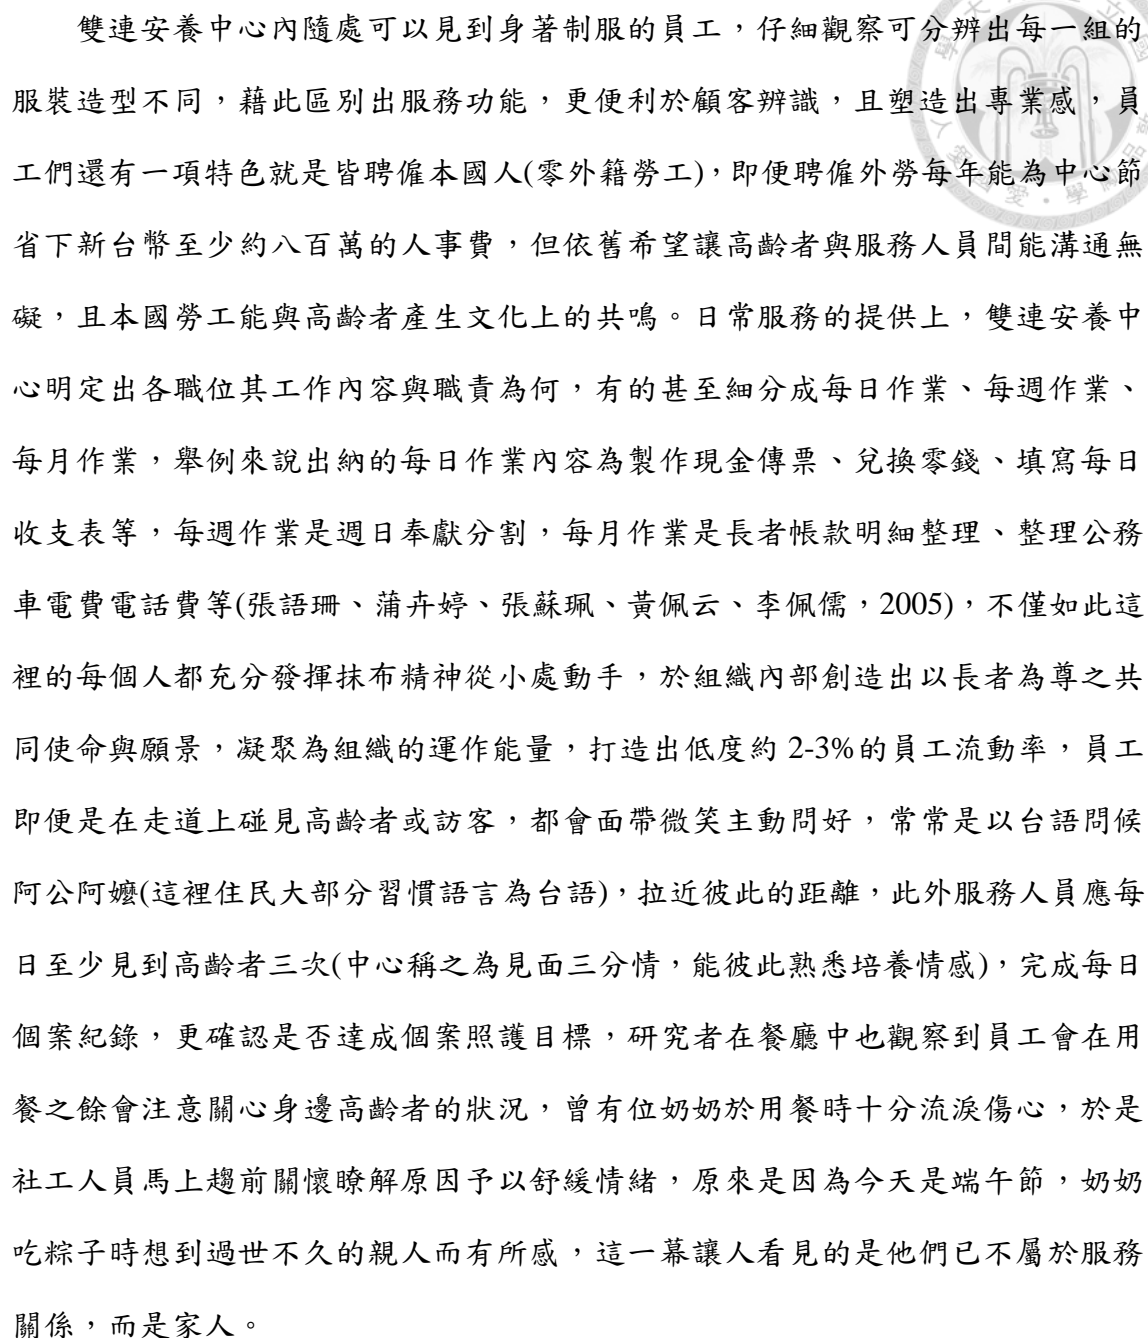 雙連安養中心內隨處可以見到身著制服的員工，仔細觀察可分辨出每一組的
服裝造型不同，藉此區別出服務功能，更便利於顧客辨識，且塑造出專業感，員
工們還有一項特色就是皆聘僱本國人(零外籍勞工)，即便聘僱外勞每年能為中心節
省下新台幣至少約八百萬的人事費，但依舊希望讓高齡者與服務人員間能溝通無
礙，且本國勞工能與高齡者產生文化上的共鳴。日常服務的提供上，雙連安養中
心明定出各職位其工作內容與職責為何，有的甚至細分成每日作業、每週作業、
每月作業，舉例來說出納的每日作業內容為製作現金傳票、兌換零錢、填寫每日
收支表等，每週作業是週日奉獻分割，每月作業是長者帳款明細整理、整理公務
車電費電話費等(張語珊、蒲卉婷、張蘇珮、黃佩云、李佩儒，2005)，不僅如此這
裡的每個人都充分發揮抹布精神從小處動手，於組織內部創造出以長者為尊之共
同使命與願景，凝聚為組織的運作能量，打造出低度約 2-3%的員工流動率，員工
即便是在走道上碰見高齡者或訪客，都會面帶微笑主動問好，常常是以台語問候
阿公阿嬤(這裡住民大部分習慣語言為台語)，拉近彼此的距離，此外服務人員應每
日至少見到高齡者三次(中心稱之為見面三分情，能彼此熟悉培養情感)，完成每日
個案紀錄，更確認是否達成個案照護目標，研究者在餐廳中也觀察到員工會在用
餐之餘會注意關心身邊高齡者的狀況，曾有位奶奶於用餐時十分流淚傷心，於是
社工人員馬上趨前關懷瞭解原因予以舒緩情緒，原來是因為今天是端午節，奶奶
吃粽子時想到過世不久的親人而有所感，這一幕讓人看見的是他們已不屬於服務
關係，而是家人。